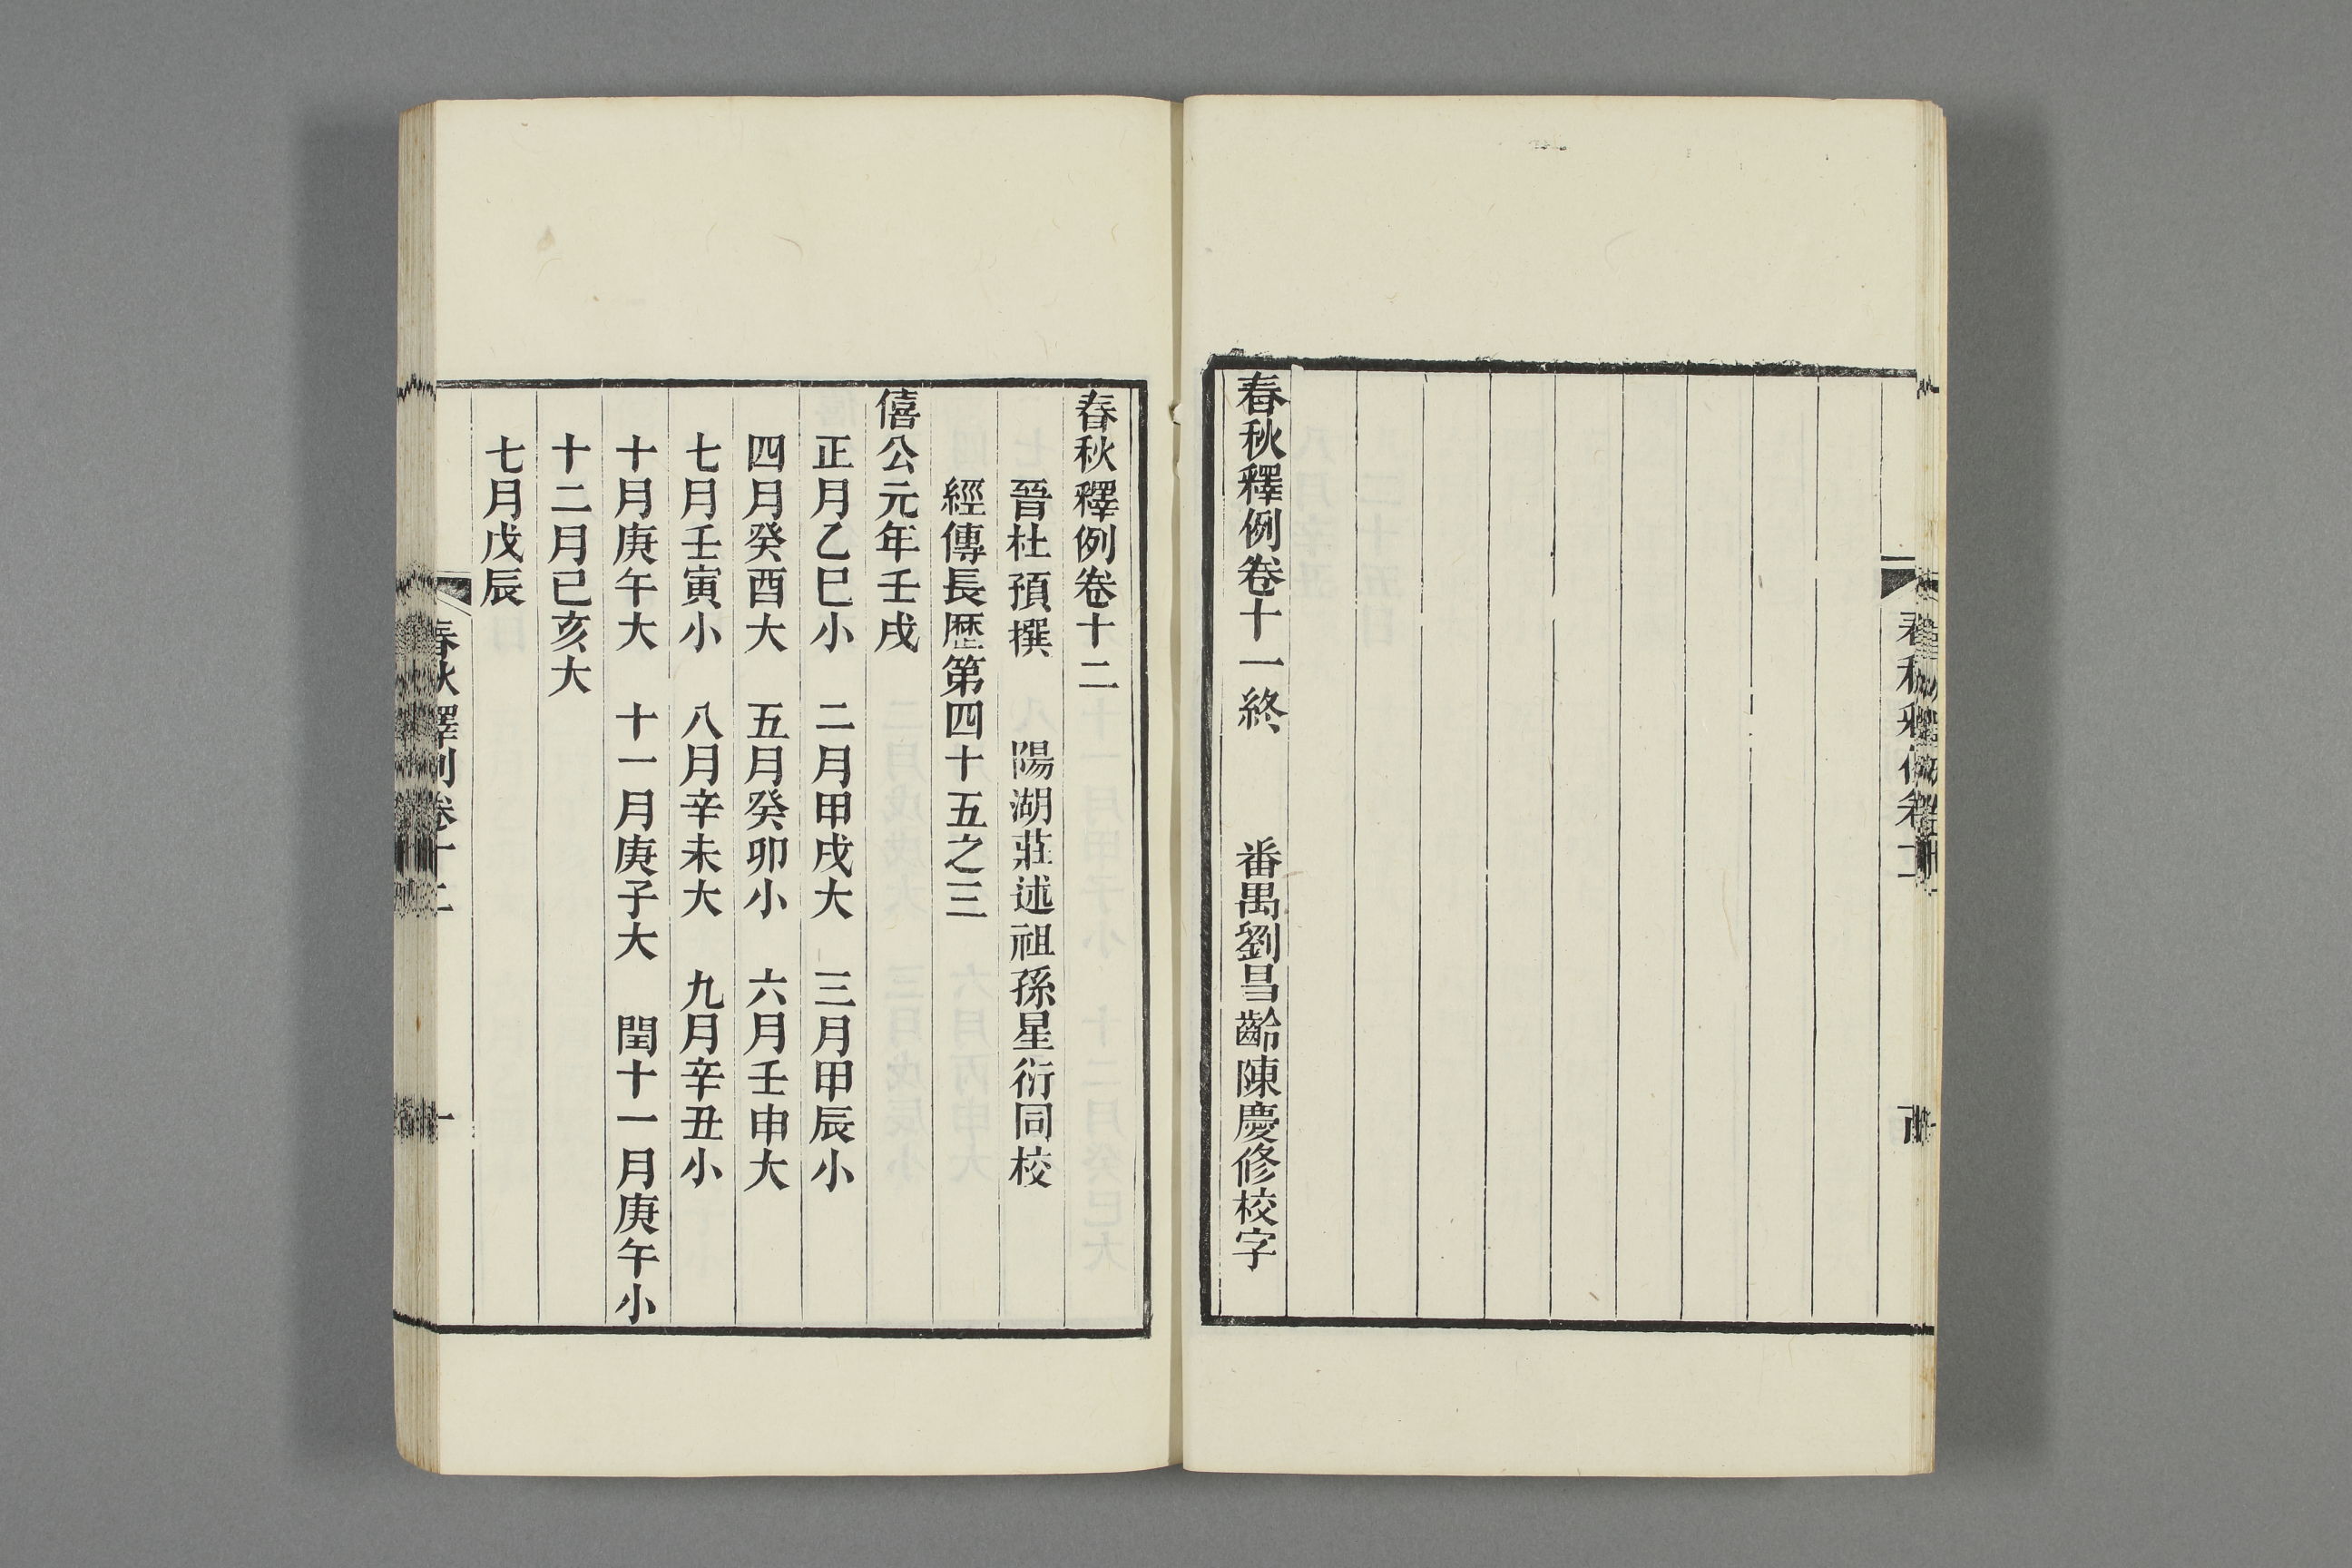 春秋釋例卷十一終　番禺劉昌齡陳慶修校字
春秋釋例卷十二
晉杜預撰　陽湖莊述祖孫星衍同校
經傳長歷第四十五之三
僖公元年壬戌
正月乙巳小　二月甲戌大　三月甲辰小
四月癸酉大　五月癸卯小　六月壬申大
七月壬寅小　八月辛未大　九月辛丑小
十月庚午大　十一月庚子大　閏十一月庚午小
十二月己亥大
七月戊辰
春秋釋例卷十二
一